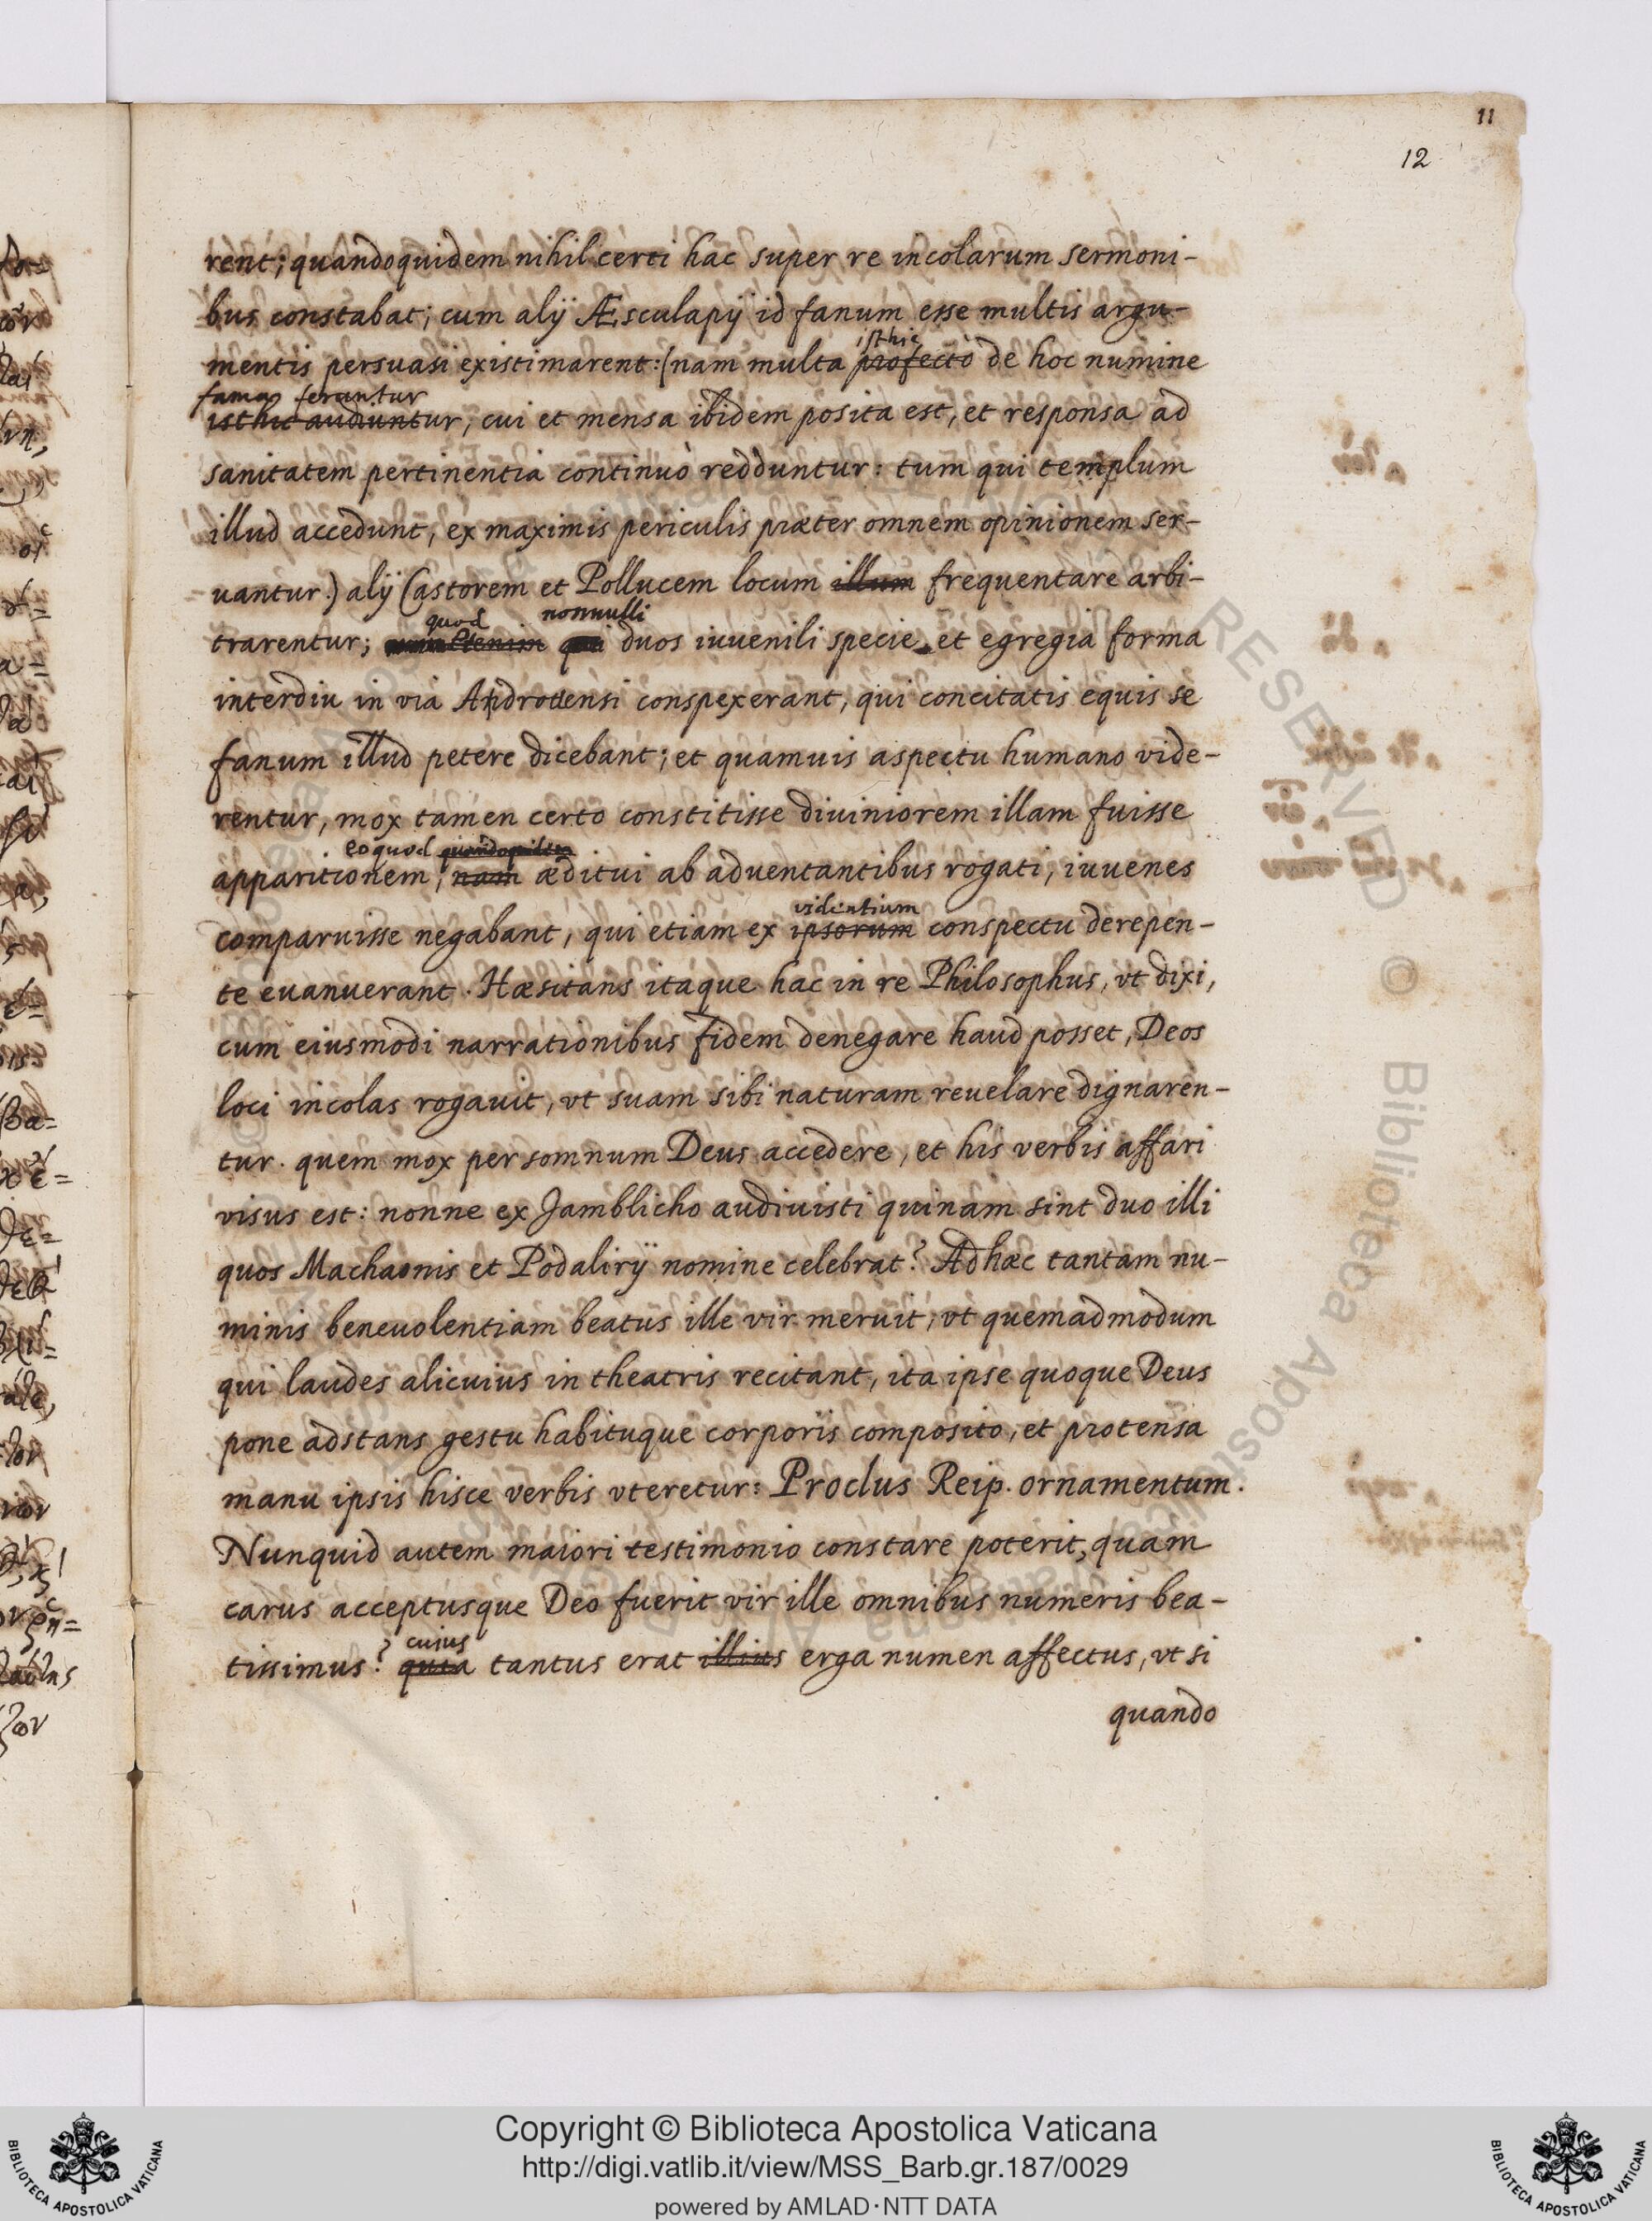 11
12
rent; quandoquidem nihil certi hac super re incolarum sermoni-
bus constabat; cum alÿ Æsculapÿ id fanum esse multis argu-
isthic
mentis persuasi existimarent: (nam multa profecto de hoc numine
fama feruntur
isthic audiuntur, cui et mensa ibidem posita est, et responsa ad
sanitatem pertinentia continuò redduntur: tum qui templum
illud accedunt, ex maximis periculis præter omnem opinionem ser-
uantur.) alÿ Castorem et Pollucem locum illum frequentare arbi-
quod nonnulli
trarentur; etenim qui duos iuuenili specie, et egregia forma
interdiu in via conspexerant, qui concitatis equis se
fanum illud petere dicebant; et quamuis aspectu humano vide-
rentur, mox tamen certo constitisse diuiniorem illam fuisse
eo quod quandoquidem
apparitionem; nam æditui ab aduentantibus rogati, iuuenes
videntium
comparuisse negabant, qui etiam ex ipsorum conspectu derepen-
te euanuerant. Hæsitans itaque hac in re Philosophus, vt dixi,
cum eiusmodi narrationibus fidem denegare haud posset, Deos
loci incolas rogauit, vt suam sibi naturam reuelare dignaren-
tur. quem mox per somnum Deus accedere, et his verbis affari
visus est: nonne ex Jamblicho audiuisti quinam sint duo illi
quos Machaonis et Podalirÿ nomine celebrat? Ad hæc tantam nu-
minis beneuolentiam beatus ille vir meruit, vt quemadmodum
qui laudes alicuius in theatris recitant, ita ipse quoque Deus
pone adstans gestu habituque corporis composito, et protensa
manu ipsis hisce verbis vteretur: Proclus Reip. ornamentum.
Nunquid autem maiori testimonio constare poterit, quam
carus acceptusque Deo fuerit vir ille omnibus numeris bea-
cuius
tissimus? quia tantus erat illius erga numen affectus, vt si
quando
RESERVED © Biblioteca Apostolica Vaticana
Copyright © Biblioteca Apostolica Vaticana
http://digi.vatlib.it/view/MSS_Barb.gr.187/0029
powered by AMLAD·NTT DATA
BIBLIOTECA APOSTOLICA VATICANA
BIBLIOTECA APOSTOLICA VATICANA